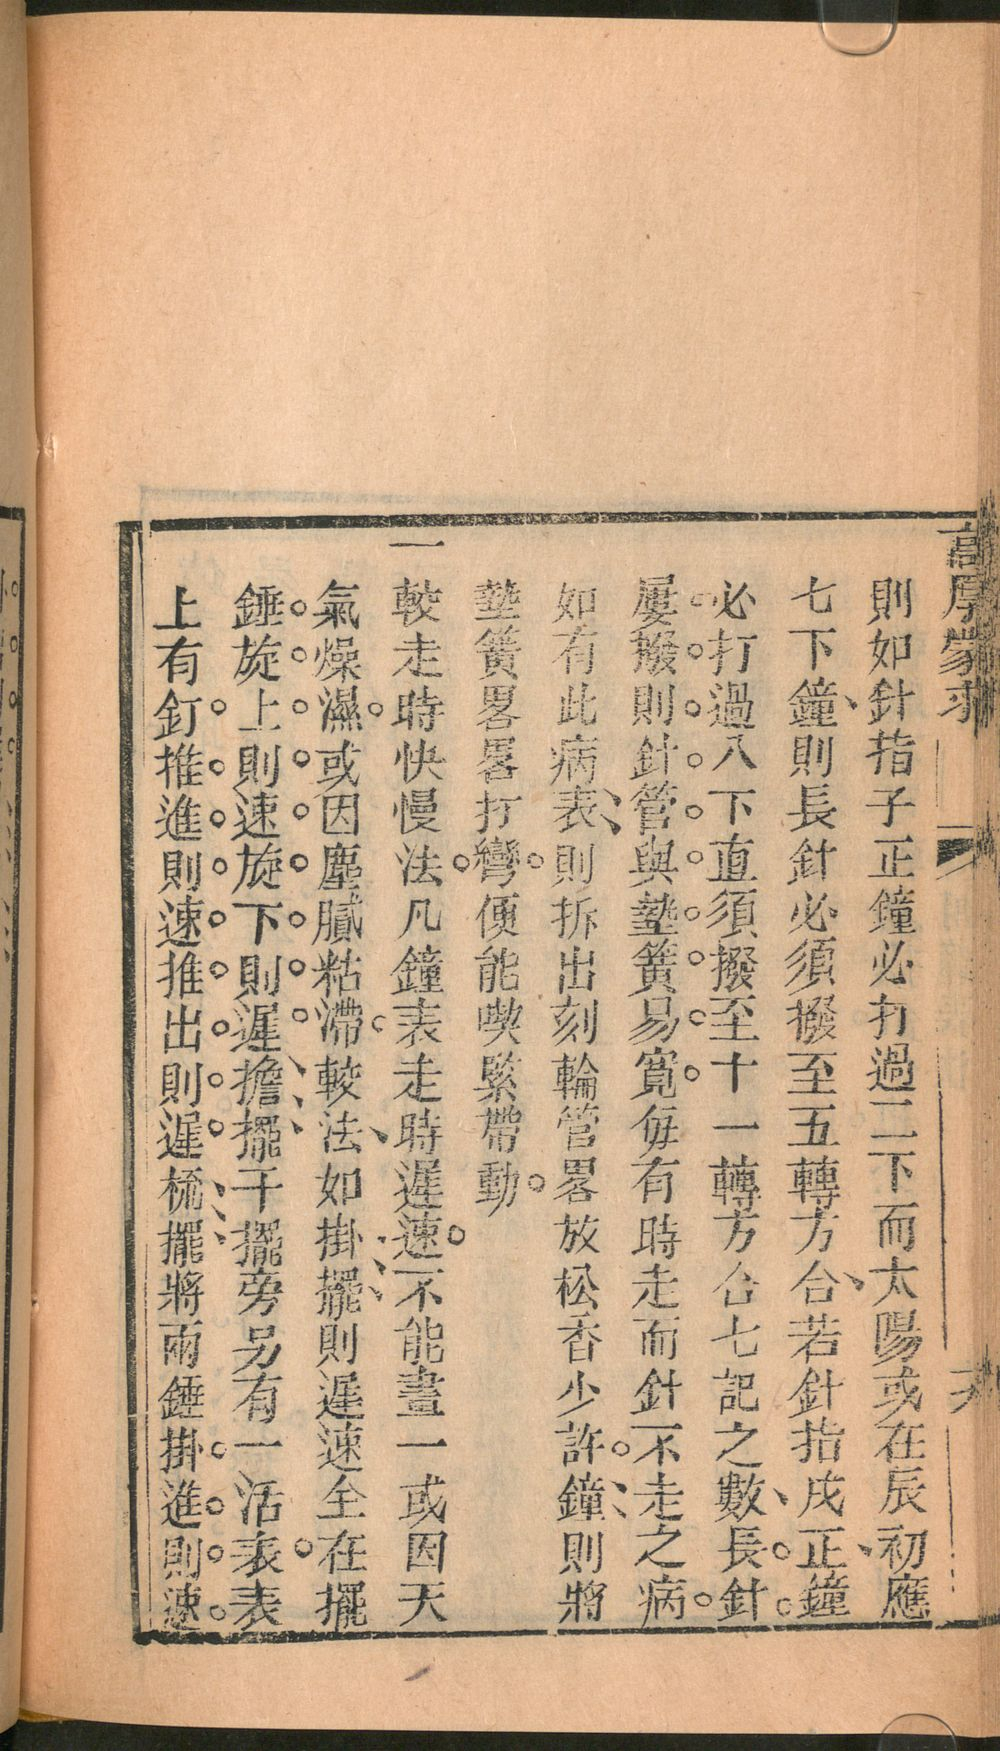 高厚蒙求
則如針指子正鐘必打過二下而太陽或在辰初應
七下鐘則長針必須撥至五轉方合若針指戌正鐘
必打過八下直須撥至十一轉方合七記之數長針
屢撥則針管與墊簧易寬每有時走而針不走之病
如有此病表則拆出刻輪管畧放松香少許鐘則將
墊簧畧畧打彎便能喫緊帶動
一較走時快慢法凡鐘表走時遲速不能畫一或因天
氣燥濕或因塵膩粘滯較法如掛擺則遲速全在擺
錘旋上則速旋下則遲擔擺干擺旁另有一活表表
上有釘推進則速推出則遲梳擺將兩錘掛進則速